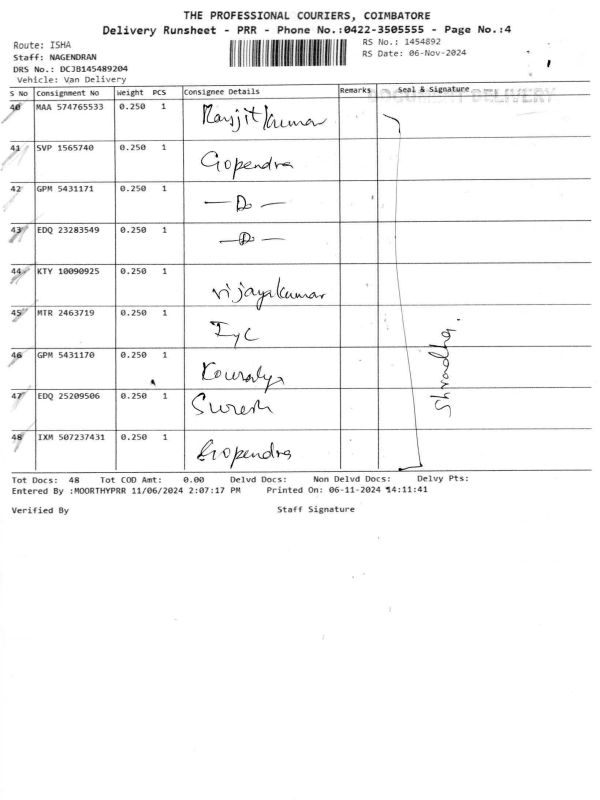 THE PROFESSIONAL COURIERS, COIMBATORE
Delivery Runsheet - PRR - Phone No.:0422-3505555 - Page No.:4
Route: ISHA
RS No.: 1454892
Staff: NAGENDRAN
RS Date: 06-Nov-2024
DRS No.: DCJB145489204
Vehicle: Van Delivery
DOCUMENT DELIVERY
S No Consignment No Weight PCS Consignee Details Remarks Seal & Signature
40 MAA 574765533 0.250 1 Ranjit kumar
41 SVP 1565740 0.250 1 Gopendra
42 GPM 5431171 0.250 1 — Do —
43 EDQ 23283549 0.250 1 — Do —
44 KTY 10090925 0.250 1 Vijayakumar
45 MTR 2463719 0.250 1 IYC
46 GPM 5431170 0.250 1
47 EDQ 25209506 0.250 1 Suresh
48 IXM 507237431 0.250 1 Gopendra
Shraddha.
Tot Docs: 48 Tot COD Amt: 0.00 Delvd Docs: Non Delvd Docs: Delvy Pts:
Entered By :MOORTHYPRR 11/06/2024 2:07:17 PM Printed On: 06-11-2024 14:11:41
Verified By Staff Signature